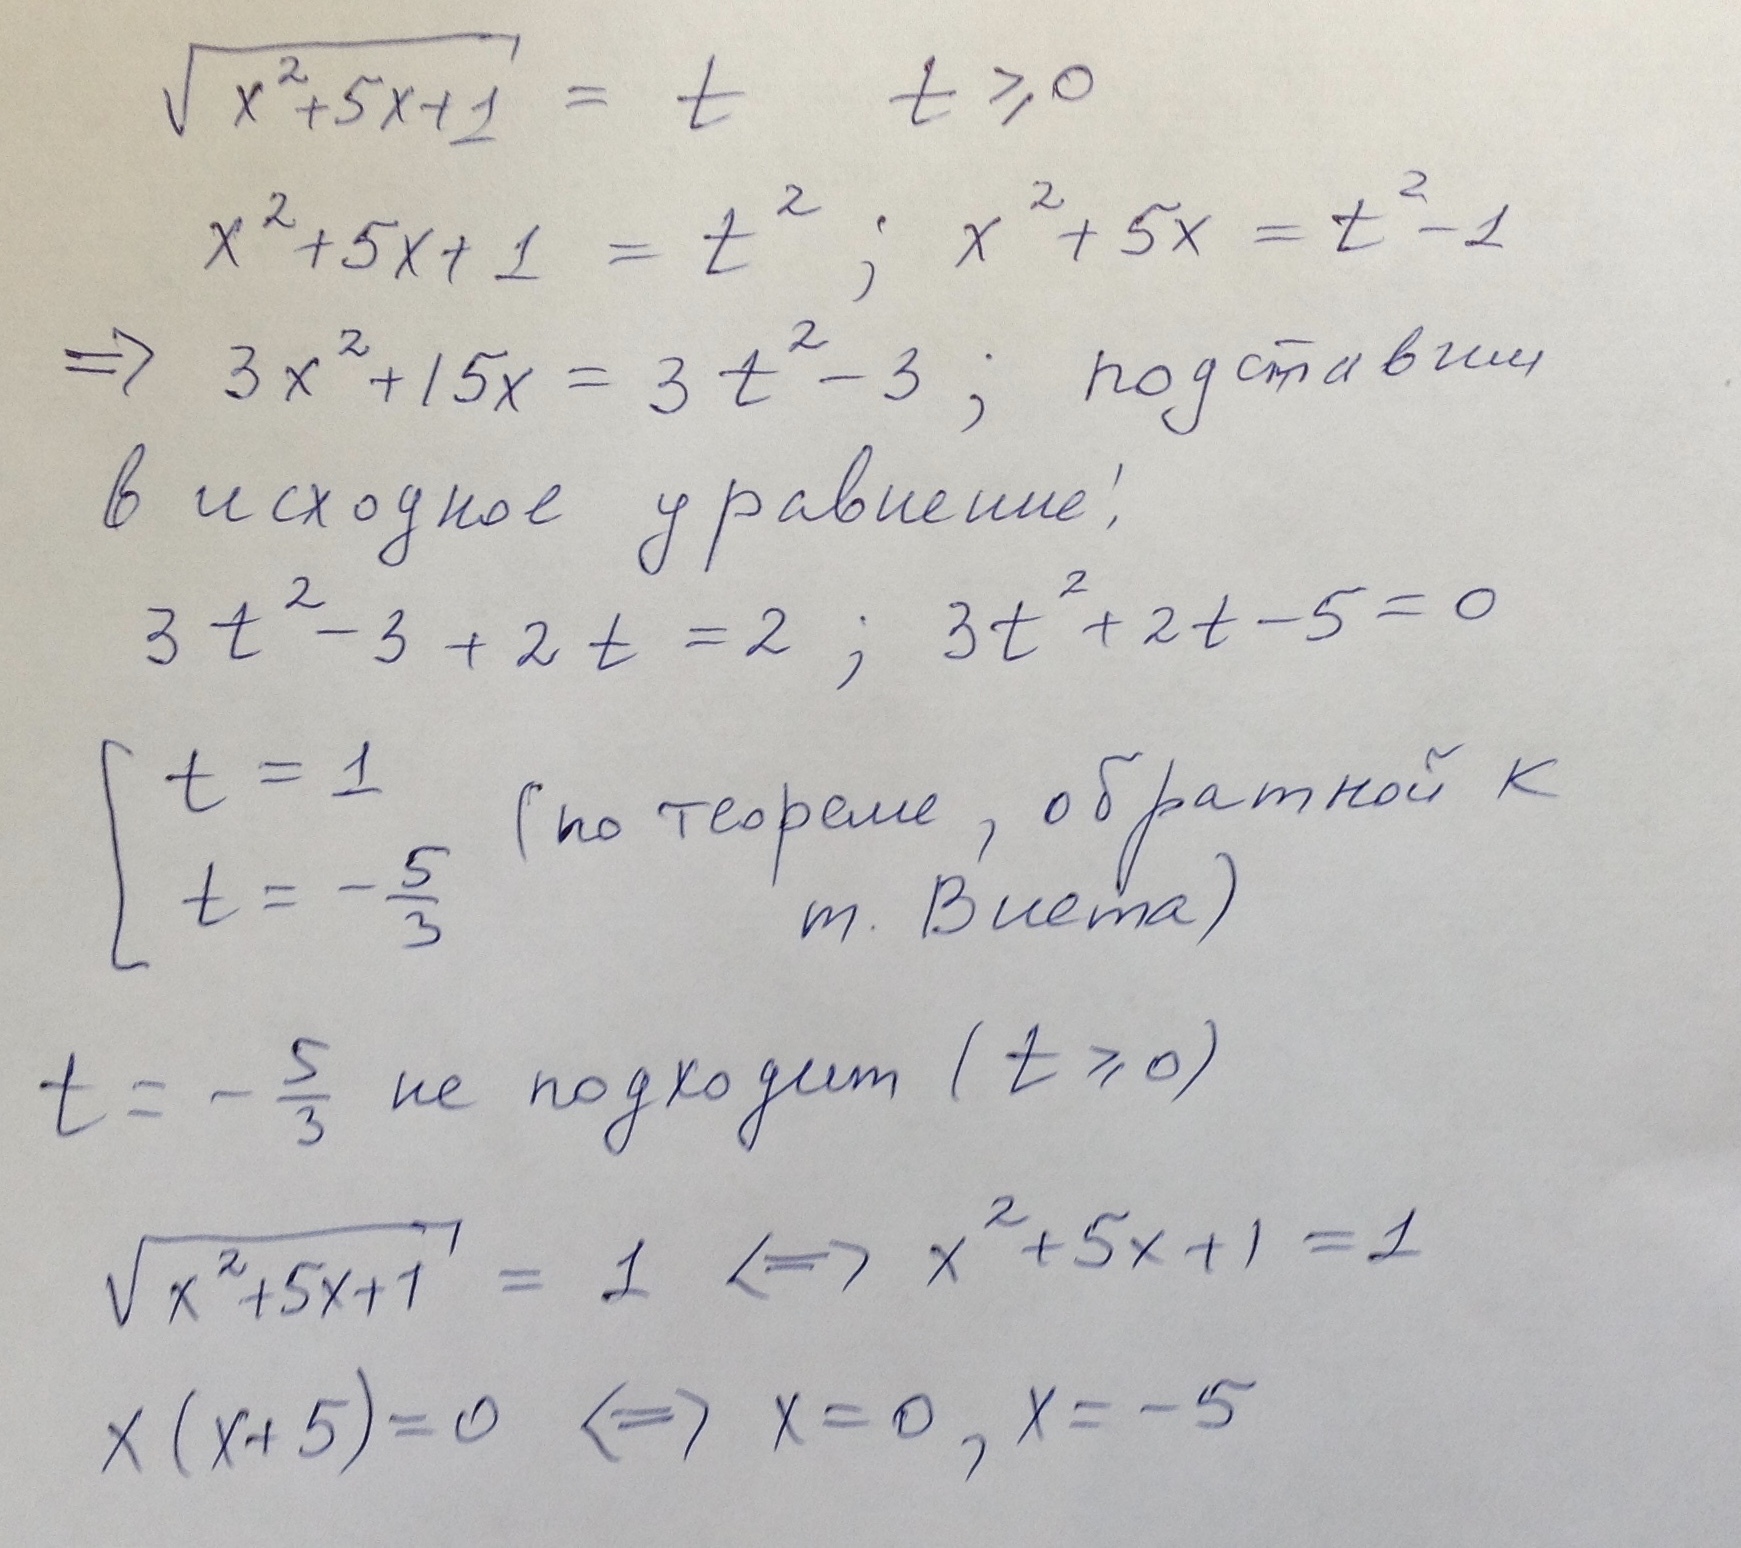 √(x²+5x+1) = t t ⩾ 0
x²+5x+1 = t² ; x²+5x = t²-1
=> 3x²+15x = 3t²-3 ; подставим
в исходное уравнение!
3t²-3+2t=2 ; 3t²+2t-5=0
[ t = 1
(по теореме, обратной к
t = -5/3
т. Виета)
t = -5/3 не подходит (t ⩾ 0)
√(x²+5x+1) = 1 <=> x²+5x+1=1
x(x+5)=0 <=> x=0, x=-5